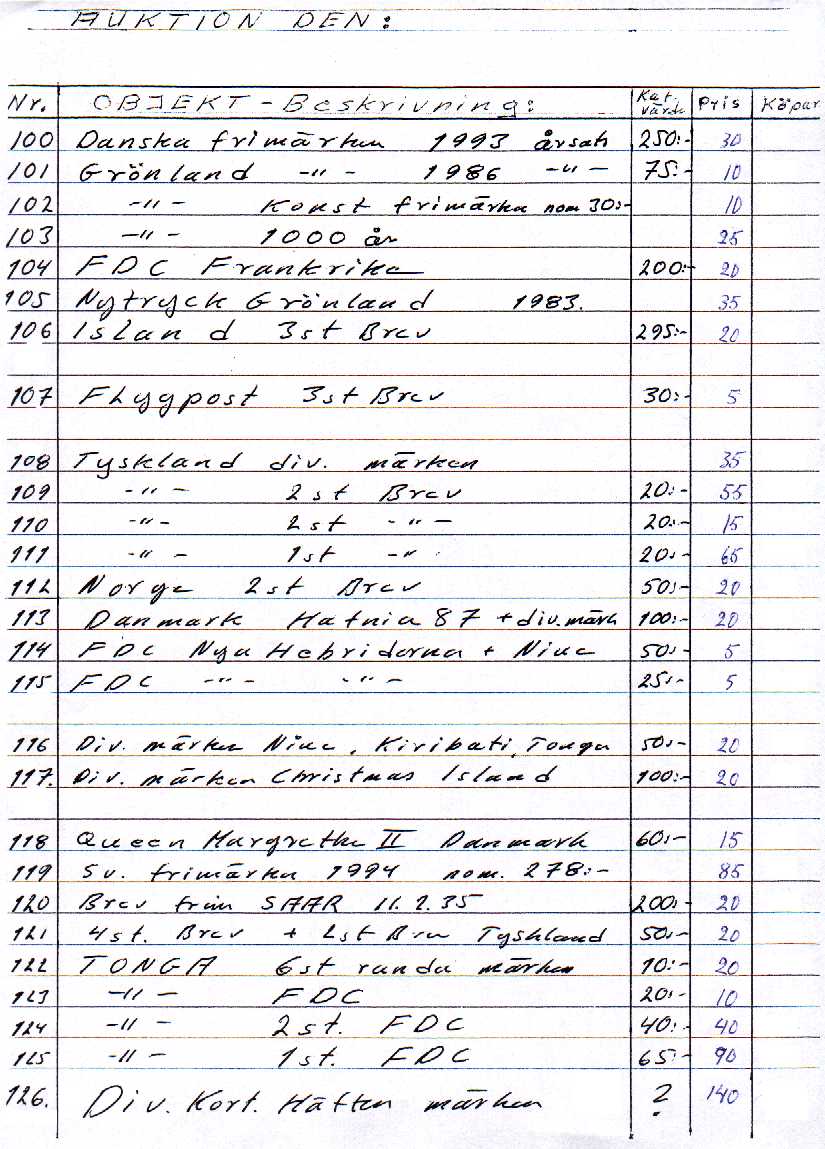 AUKTION DEN:
Nr. OBJEKT - Beskrivning: Kat. värde Pris Köpar
100 Danska frimärken 1993 årsats 250:- 30
101 Grönland -"- 1986 -"- 75:- 10
102 -"- Konst frimärka nom 30:- 10
103 -"- 1000 år 25
104 FDC Frankrike 200:- 20
105 Nytryck Grönland 1983. 35
106 Island 3st Brev 295:- 20
107 Flygpost 3st Brev 30:- 5
108 Tyskland div. märken 35
109 -"- 2st Brev 20:- 55
110 -"- 2st -"- 20:- 15
111 -"- 1st -"- 20:- 65
112 Norge 2st Brev 50:- 20
113 Danmark Hafnia 87 + div. märk 100:- 20
114 FDC Nya Hebriderna + Niue 50:- 5
115 FDC -"- -"- 25:- 5
116 Div. märken Niue, Kiribati, Tonga 50:- 20
117. Div. märken Christmas Island 100:- 20
118 Queen Margrethe II Danmark 60:- 15
119 Sv. frimärka 1994 nom. 278:- 85
120 Brev från SAAR 11.2.35 200:- 20
121 4st. Brev + 2st Brev Tyskland 50:- 20
122 TONGA 6st runda märken 10:- 20
123 -"- FDC 20:- 10
124 -"- 2st. FDC 40:- 40
125 -"- 1st. FDC 65:- 90
126. Div. Kort. Häften märken ? 140